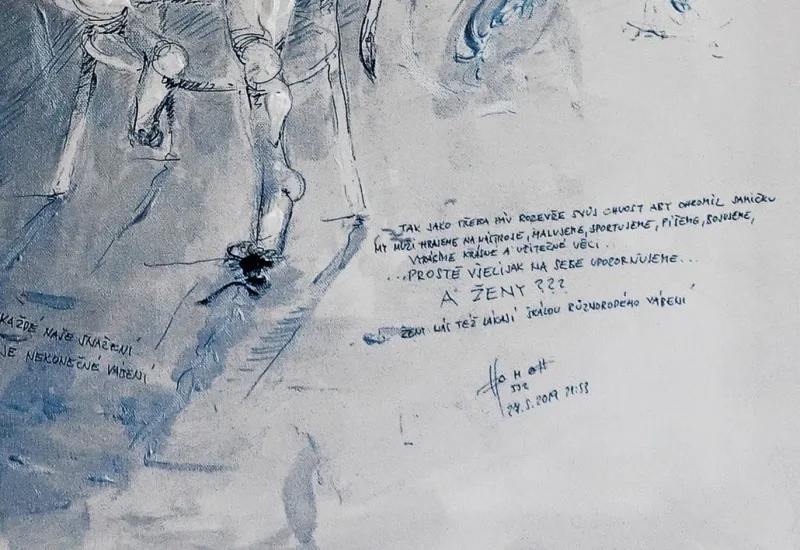 TAK JAKO TŘEBA PÁV ROZEVŘE SVŮJ CHVOST ABY OHROMIL SAMIČKU
MY MUŽI HRAJEME NA NÁSTROJE, MALUJEME, SPORTUJEME, PÍŠEME, BOJUJEME,
VYRÁBÍME KRÁSNÉ A UŽITEČNÉ VĚCI...
...PROSTĚ VŠELIJAK NA SEBE UPOZORŇUJEME...
A ŽENY ???
ŽENY NÁS TÉŽ LÁKAJÍ ŠKÁLOU RŮZNORODÉHO VÁBENÍ
KAŽDÉ NAŠE SNAŽENÍ
JE NEKONEČNÉ VÁBENÍ
24.5.2019 21:53